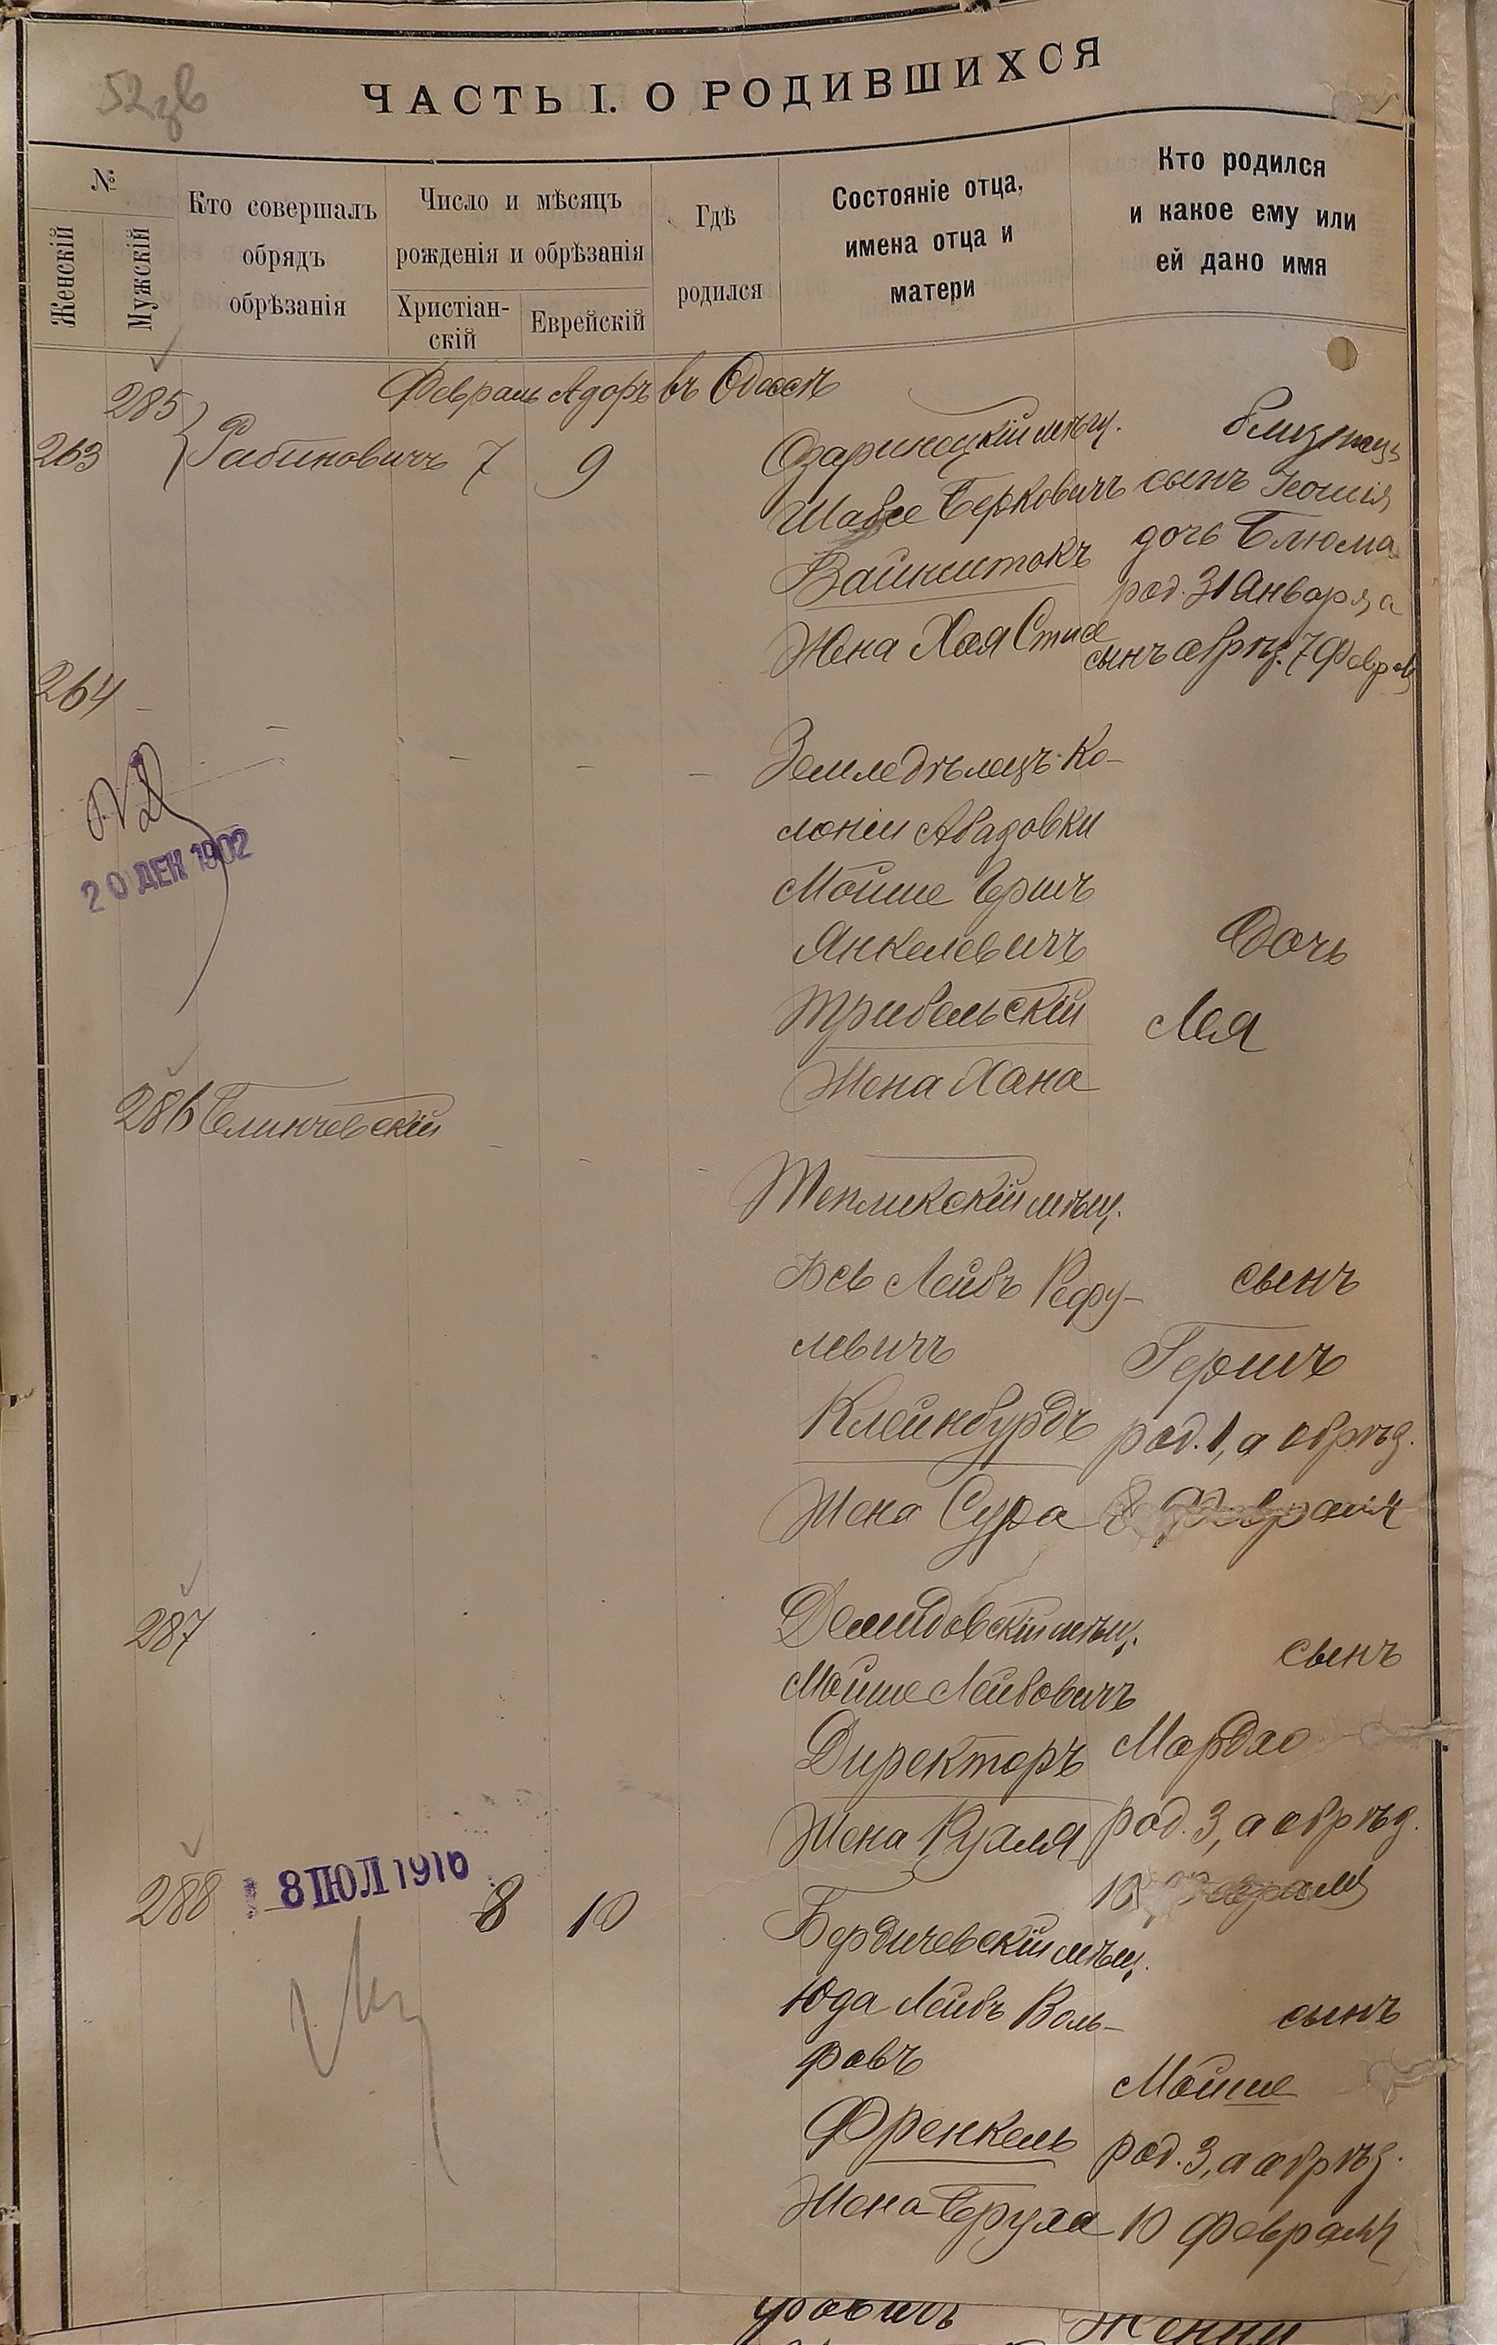 52 зв
ЧАСТЬ I. О РОДИВШИХСЯ
№
Женскій
Мужскій
Кто совершалъ
обрядъ
обрѣзанія
Число и мѣсяцъ
рожденія и обрѣзанія
Христіан-
скій
Еврейскій
Гдѣ
родился
Состояніе отца,
имена отца и
матери
Кто родился
и какое ему или
ей дано имя
Февраль Адоръ въ Одессѣ
285
263
Рабиновичъ 7 9
Озаринецкій мѣщ.
Шабсе Берковичъ
Вайншток
Жена Хая
близнецы
сынъ
дочь Блюма
род. 31 Января, а
сынъ обрѣз. 7 Февраля
264
20 ДЕК 1902
Земледѣлецъ Ко-
лоніи Абазовки
Мойше Гершъ
Янкелевичъ
Трибельскій
Жена Хана
Дочь
Лея
286
Тепликскій мѣщ.
Лейбъ Рефу-
левичъ
Клейнбурдъ
Жена Сура
сынъ
Гершъ
род. 1, а обрѣз.
8 Февраля
287
Демидовскій мѣщ.
Мойше Лейбовичъ
Директоръ
Жена Рухля
сынъ
Мордхо
род. 3, а обрѣз.
10 Февраля
288
8 ІЮЛ 1916
8 10
Бердичевскій мѣщ.
Юда Лейбъ Воль-
фовъ
Френкель
Жена
сынъ
Мойше
род. 3, а обрѣз.
10 Февраля
Женни